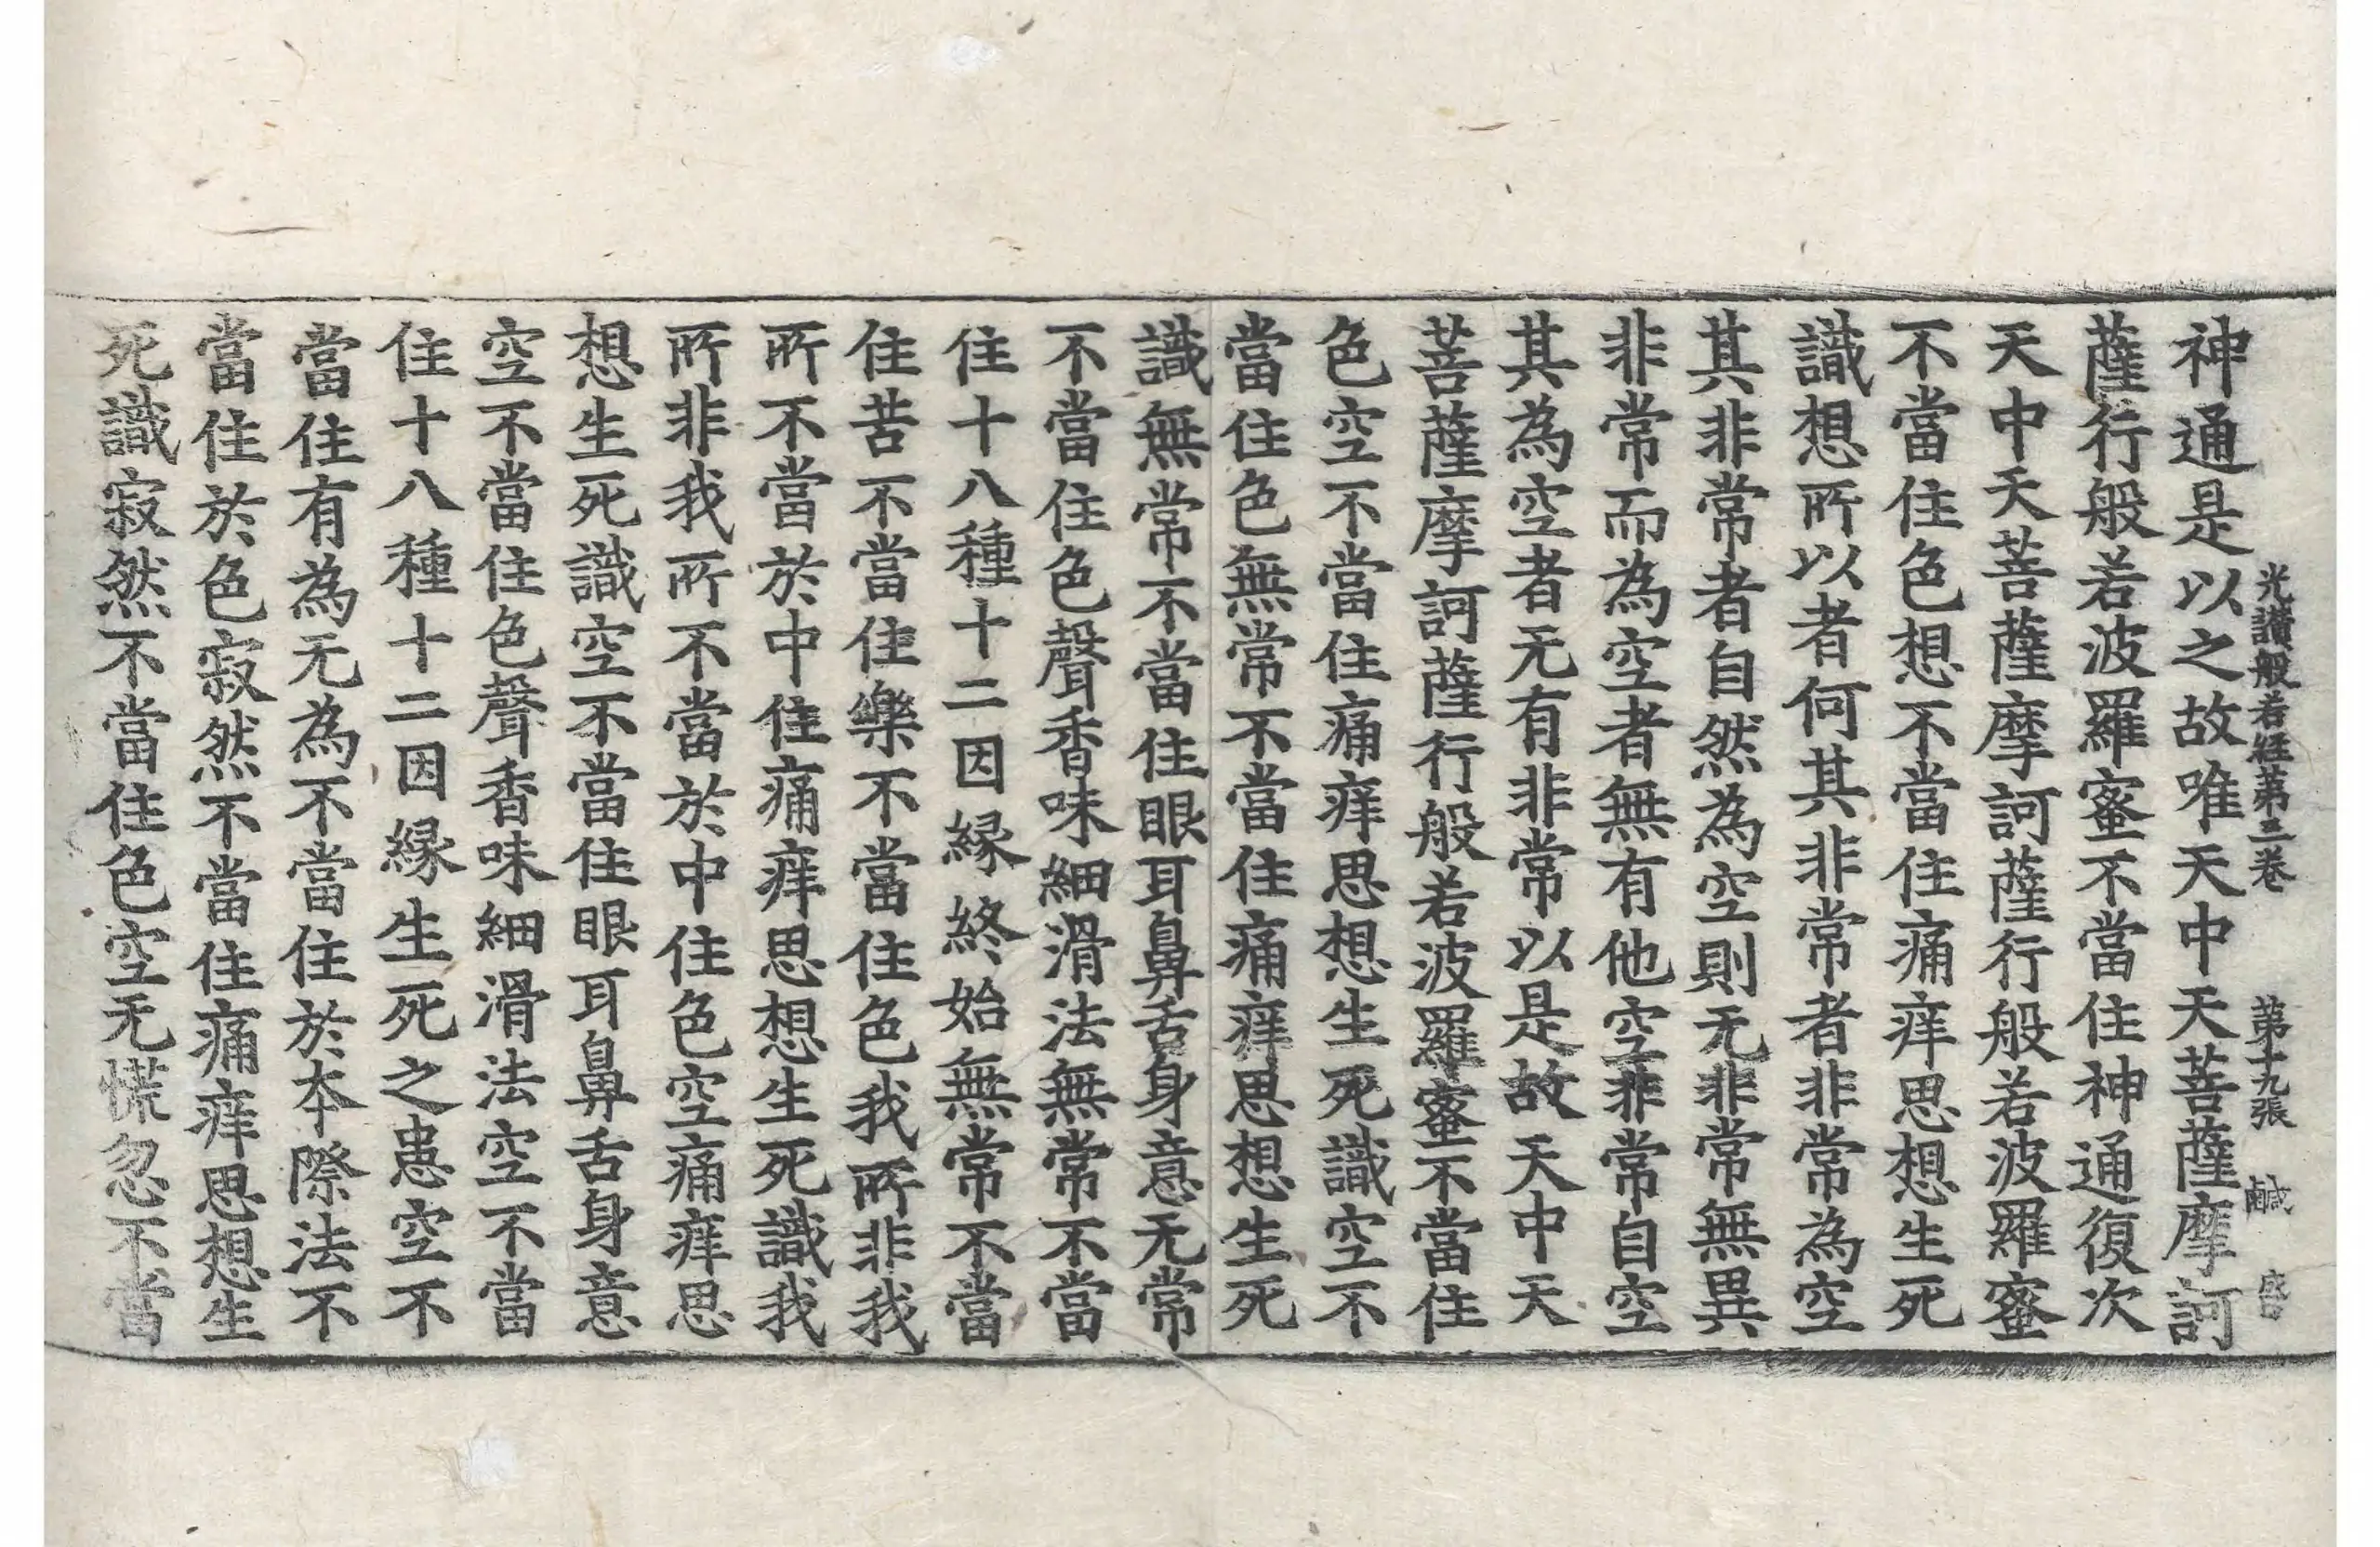 光讃般若經第三卷　第十九張　鹹
神通是以之故唯天中天菩薩摩訶
薩行般若波羅蜜不當住神通復次
天中天菩薩摩訶薩行般若波羅蜜
不當住色想不當住痛痒思想生死
識想所以者何其非常者非常為空
其非常者自然為空則无非常無異
非常而為空者無有他空非常自空
其為空者无有非常以是故天中天
菩薩摩訶薩行般若波羅蜜不當住
色空不當住痛痒思想生死識空不
當住色無常不當住痛痒思想生死
識無常不當住眼耳鼻舌身意无常
不當住色聲香味細滑法無常不當
住十八種十二因縁終始無常不當
住苦不當住樂不當住色我所非我
所不當於中住痛痒思想生死識我
所非我所不當於中住色空痛痒思
想生死識空不當住眼耳鼻舌身意
空不當住色聲香味細滑法空不當
住十八種十二因縁生死之患空不
當住有為无為不當住於本際法不
當住於色寂然不當住痛痒思想生
死識寂然不當住色空无慌忽不當